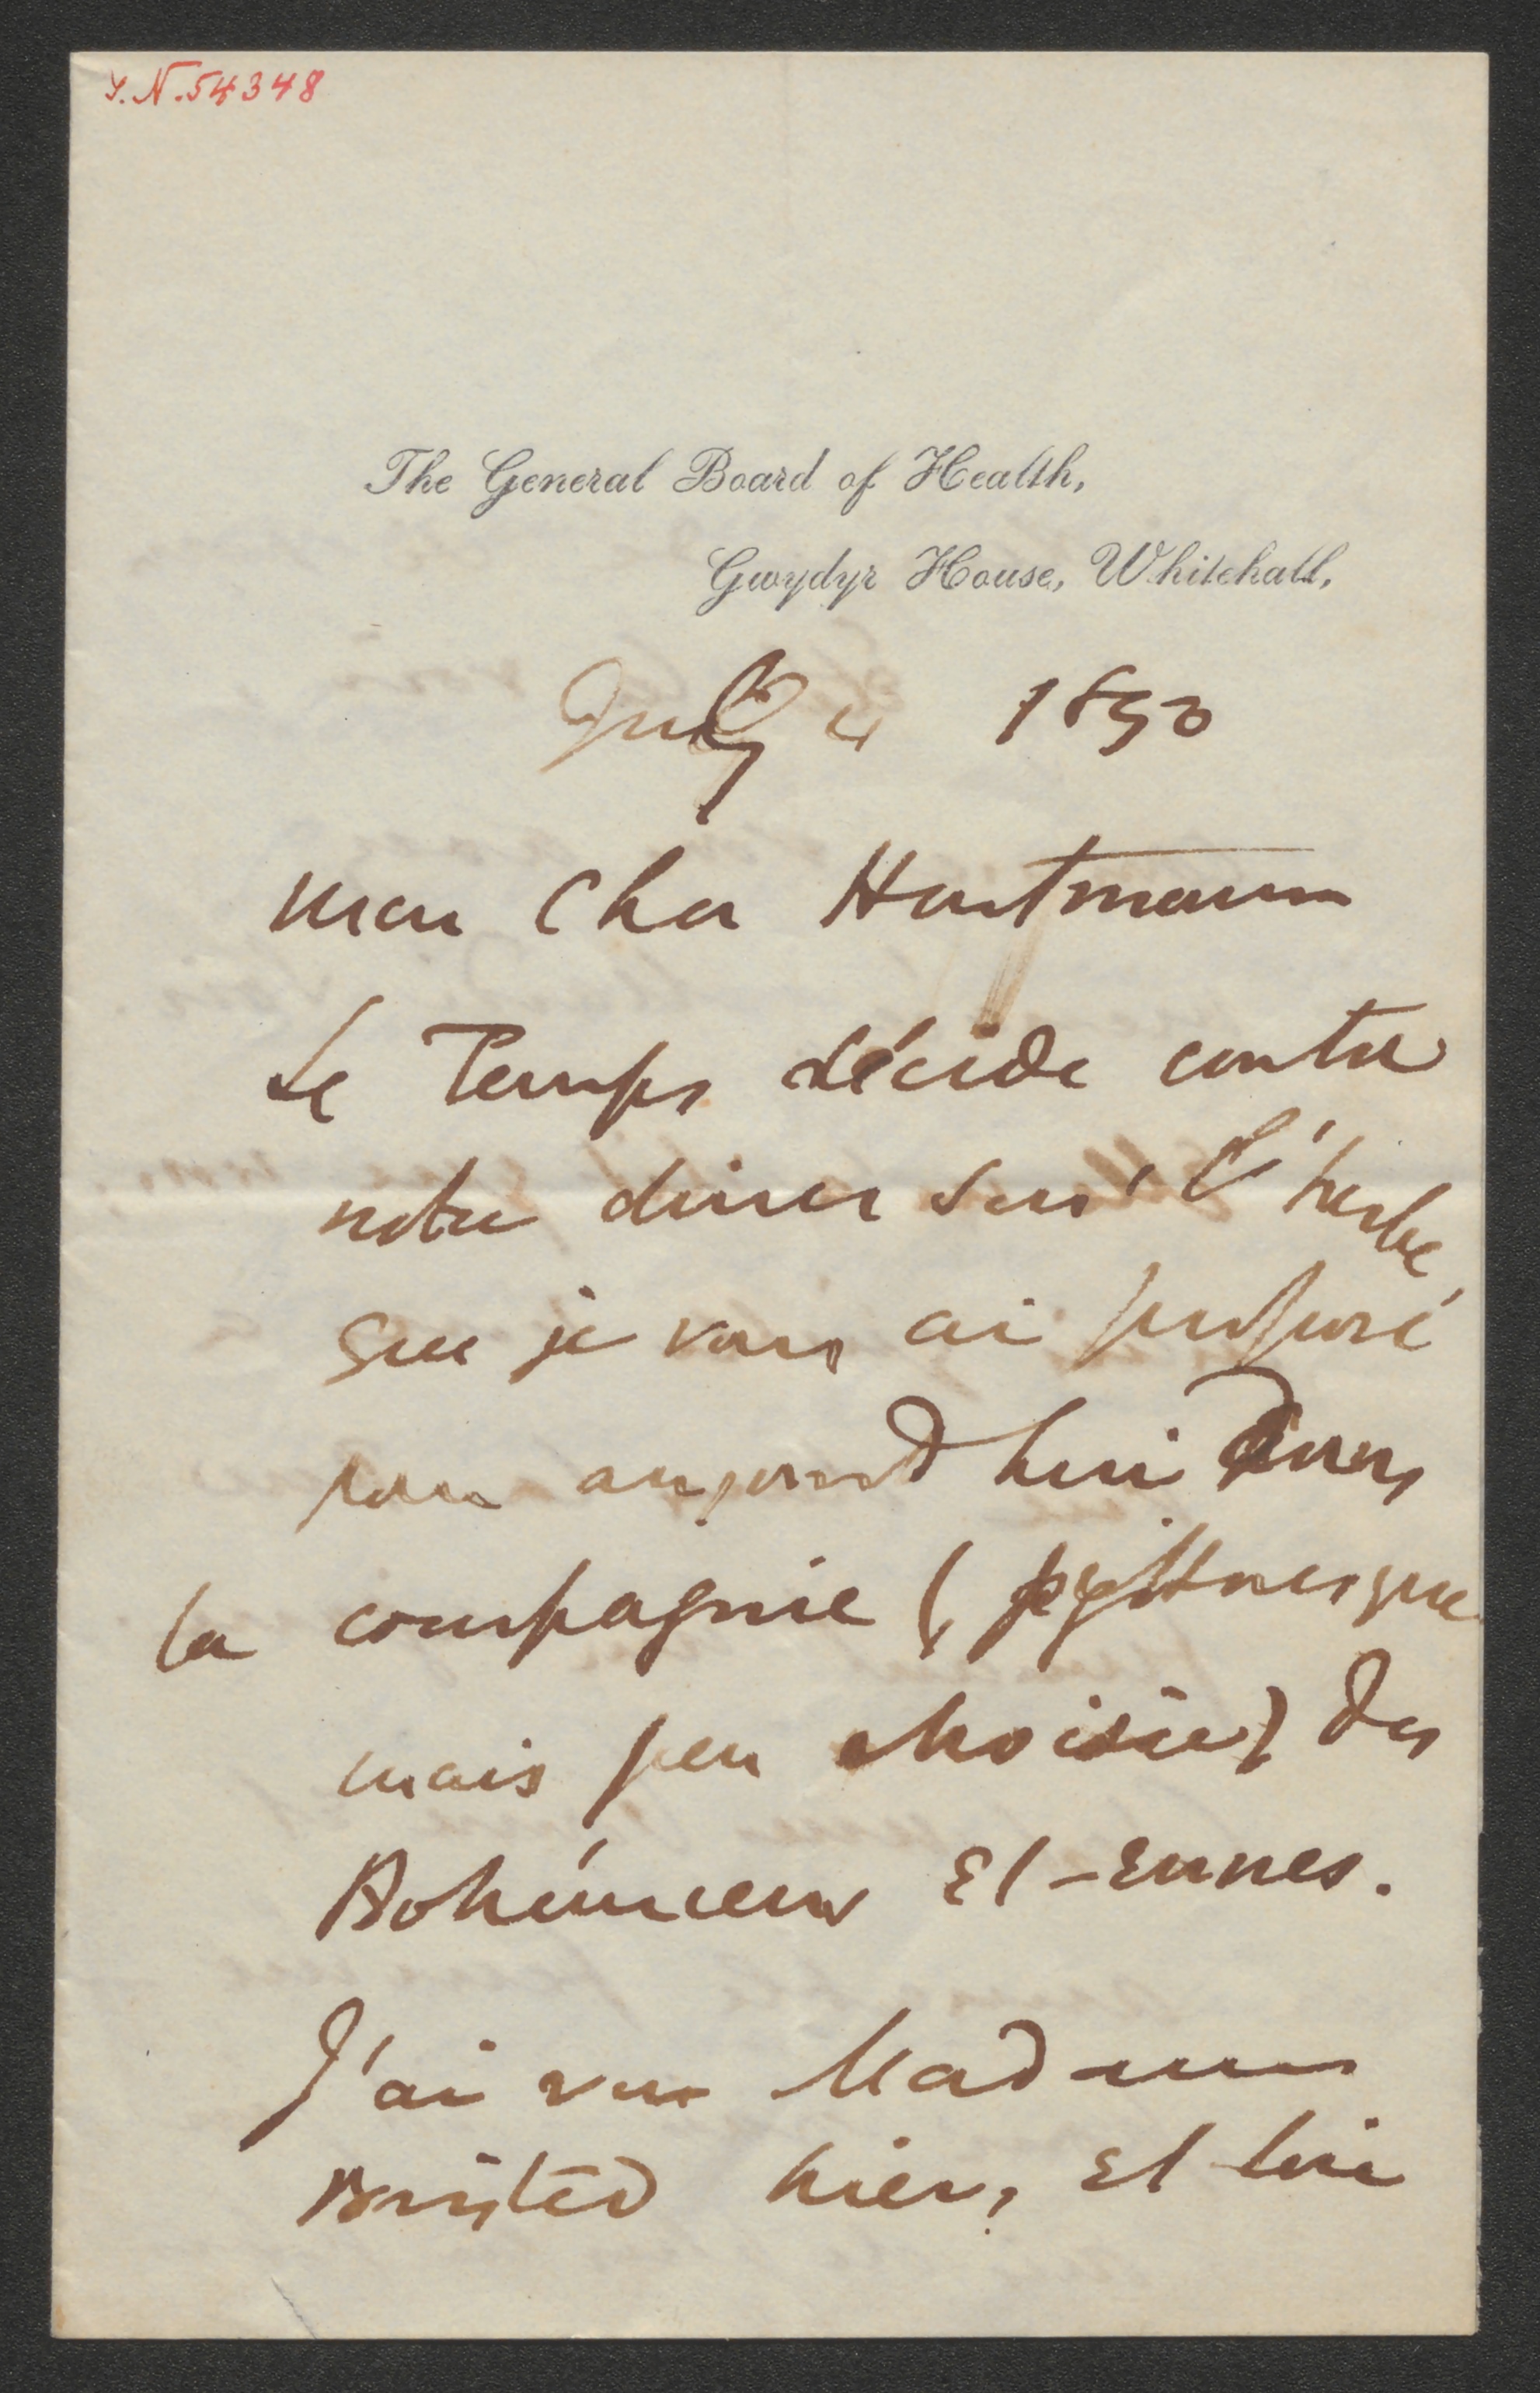 I.N. 54348
The General Board of Health,
Gwydyr House, Whitehall,
July 4 1850
Mon cher Hartmann
Le Temps décide contre
notre diner sur l'herbe
que je vous ai proposé
pour aujourd'hui dans
la compagnie (pittoresque
mais peu choisie) des
Bohémiens et -ennes.
J'ai vu Madame
Bristed hier, et lui